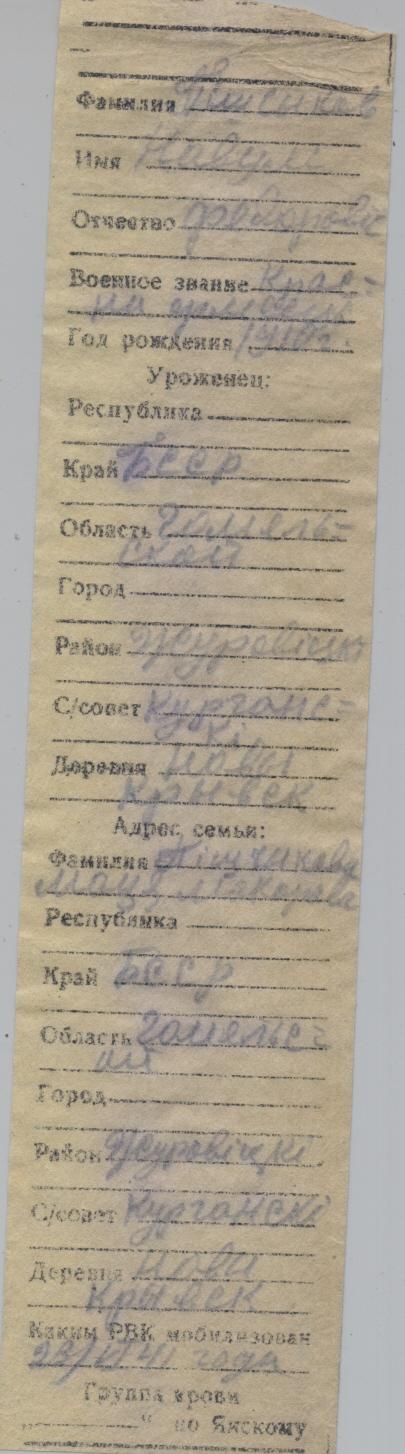 Фамилия
Имя Навум
Отчество Фёдоровіч
Военное звание Крас=
на
Год рождения 1910г.
Уроженец:
Республика
Край БССР
Область Гомель=
ской
Город
Район Журовіцкі
С/совет Курганс=
кі
Деревня Новы
Крывск
Адрес семьи:
Фамилия Пішчикова
Республика
Край БССР
Область Гомельс=
кий
Город
Район Журовіцкі
С/совет Курганскі
Деревня Новы
Крывск
Каким РВК мобилизован
года
Группа крови
„ “ по Янскому